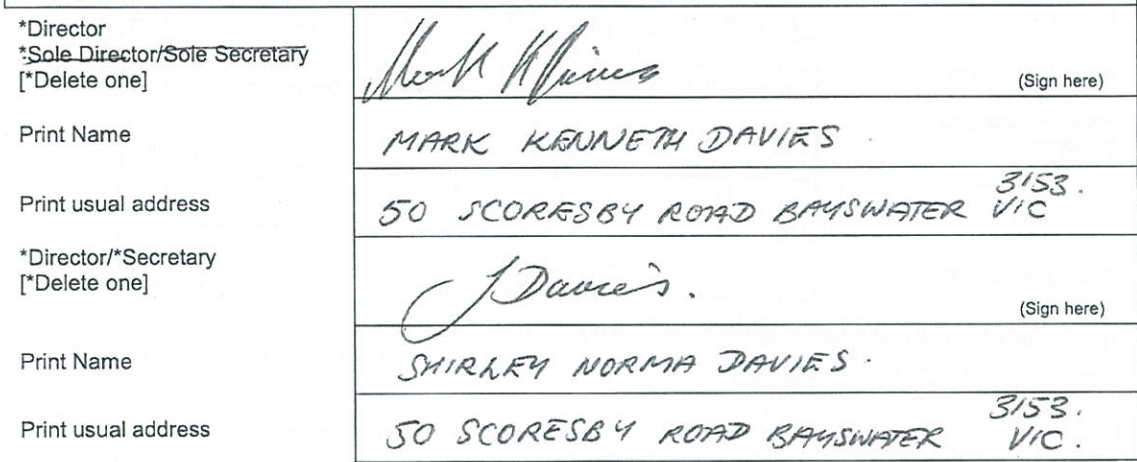 *Director
*Sole Director/Sole Secretary
[*Delete one]
Mark K Davies
(Sign here)
Print Name
MARK KENNETH DAVIES.
Print usual address
50 SCORESBY ROAD BAYSWATER VIC 3153.
*Director/*Secretary
[*Delete one]
S Davies.
(Sign here)
Print Name
SHIRLEY NORMA DAVIES.
Print usual address
50 SCORESBY ROAD BAYSWATER VIC. 3153.